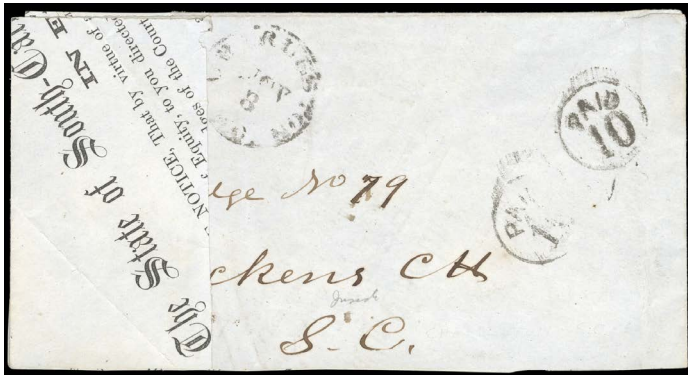 The State of South-Car
IN E
NOTICE, That by virtue of
Equity, to you directed
of the Court
RUTS TON
8
PAID
10
PAI
1
dge No 79
ckens CH
S. C.